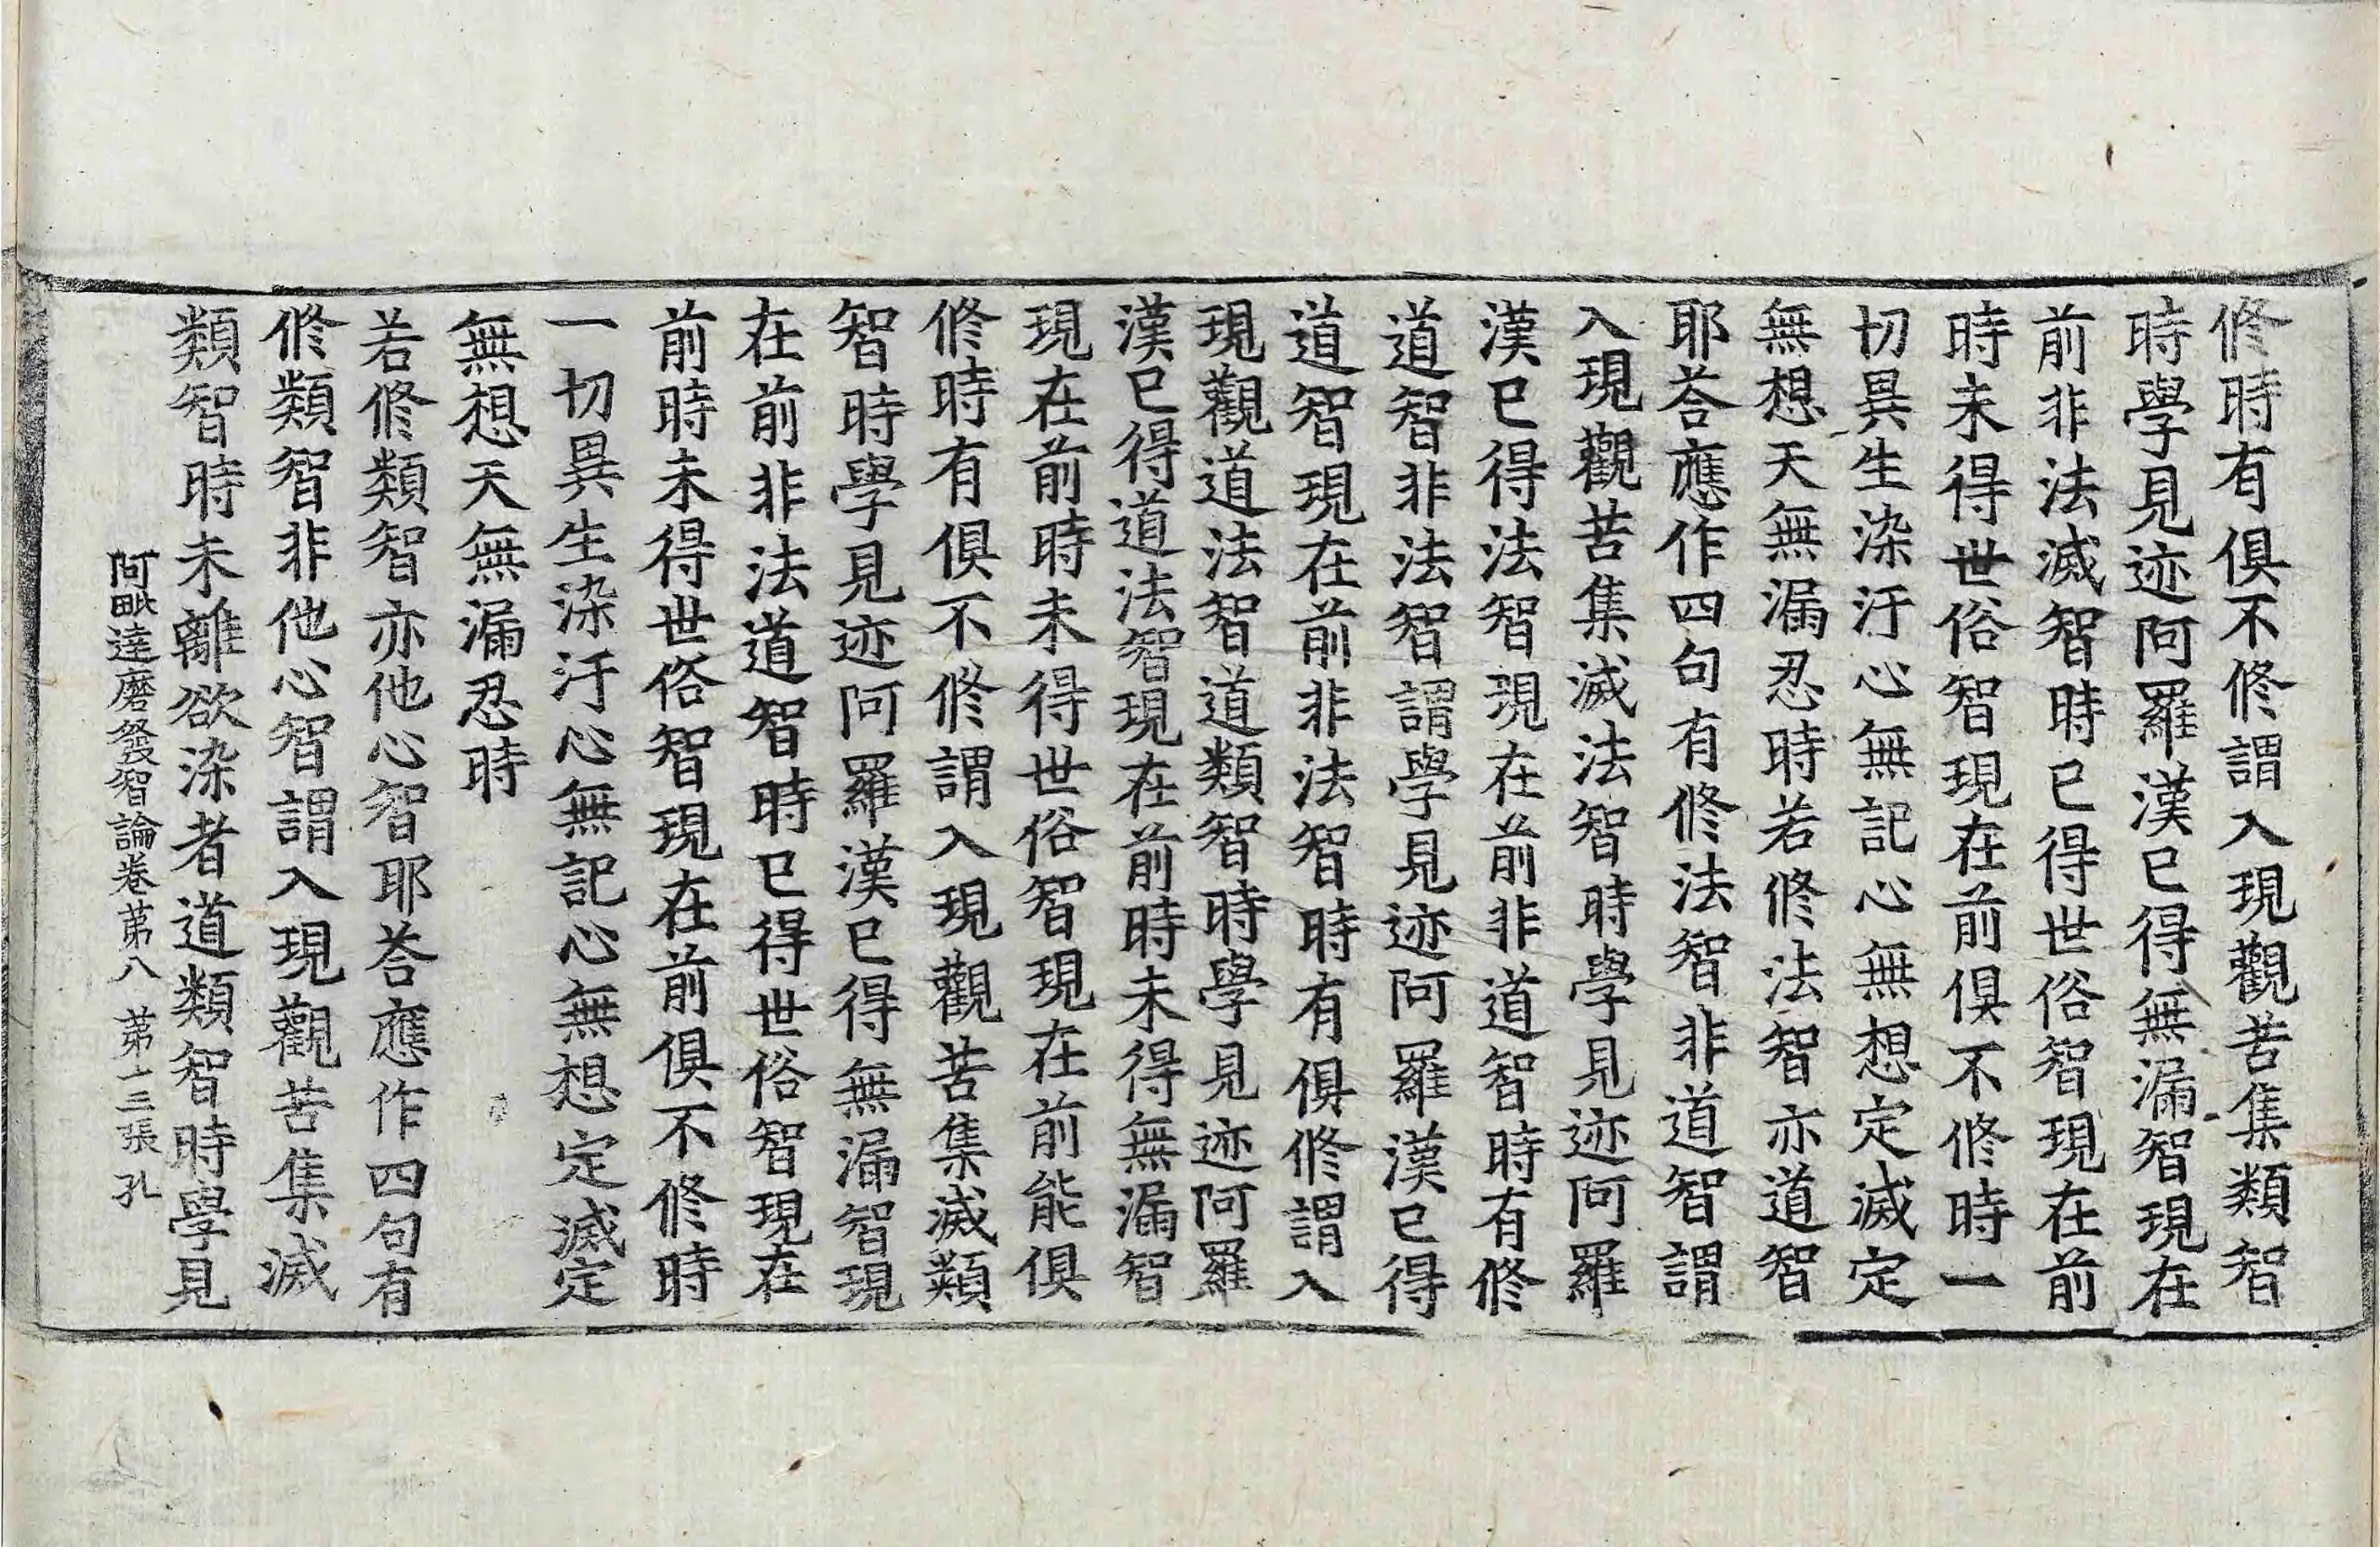 修時有俱不修謂入現觀苦集類智
時學見迹阿羅漢已得無漏智現在
前非法滅智時已得世俗智現在前
時未得世俗智現在前俱不修時一
切異生染汙心無記心無想定滅定
無想天無漏忍時若修法智亦道智
耶荅應作四句有修法智非道智謂
入現觀苦集滅法智時學見迹阿羅
漢已得法智現在前非道智時有修
道智非法智謂學見迹阿羅漢已得
道智現在前非法智時有俱修謂入
現觀道法智道類智時學見迹阿羅
漢已得道法智現在前時未得無漏智
現在前時未得世俗智現在前能俱
修時有俱不修謂入現觀苦集滅類
智時學見迹阿羅漢已得無漏智現
在前非法道智時已得世俗智現在
前時未得世俗智現在前俱不修時
一切異生染汙心無記心無想定滅定
無想天無漏忍時
若修類智亦他心智耶荅應作四句有
修類智非他心智謂入現觀苦集滅
類智時未離欲染者道類智時學見
阿毗達磨發智論卷苐八 苐十三張 孔